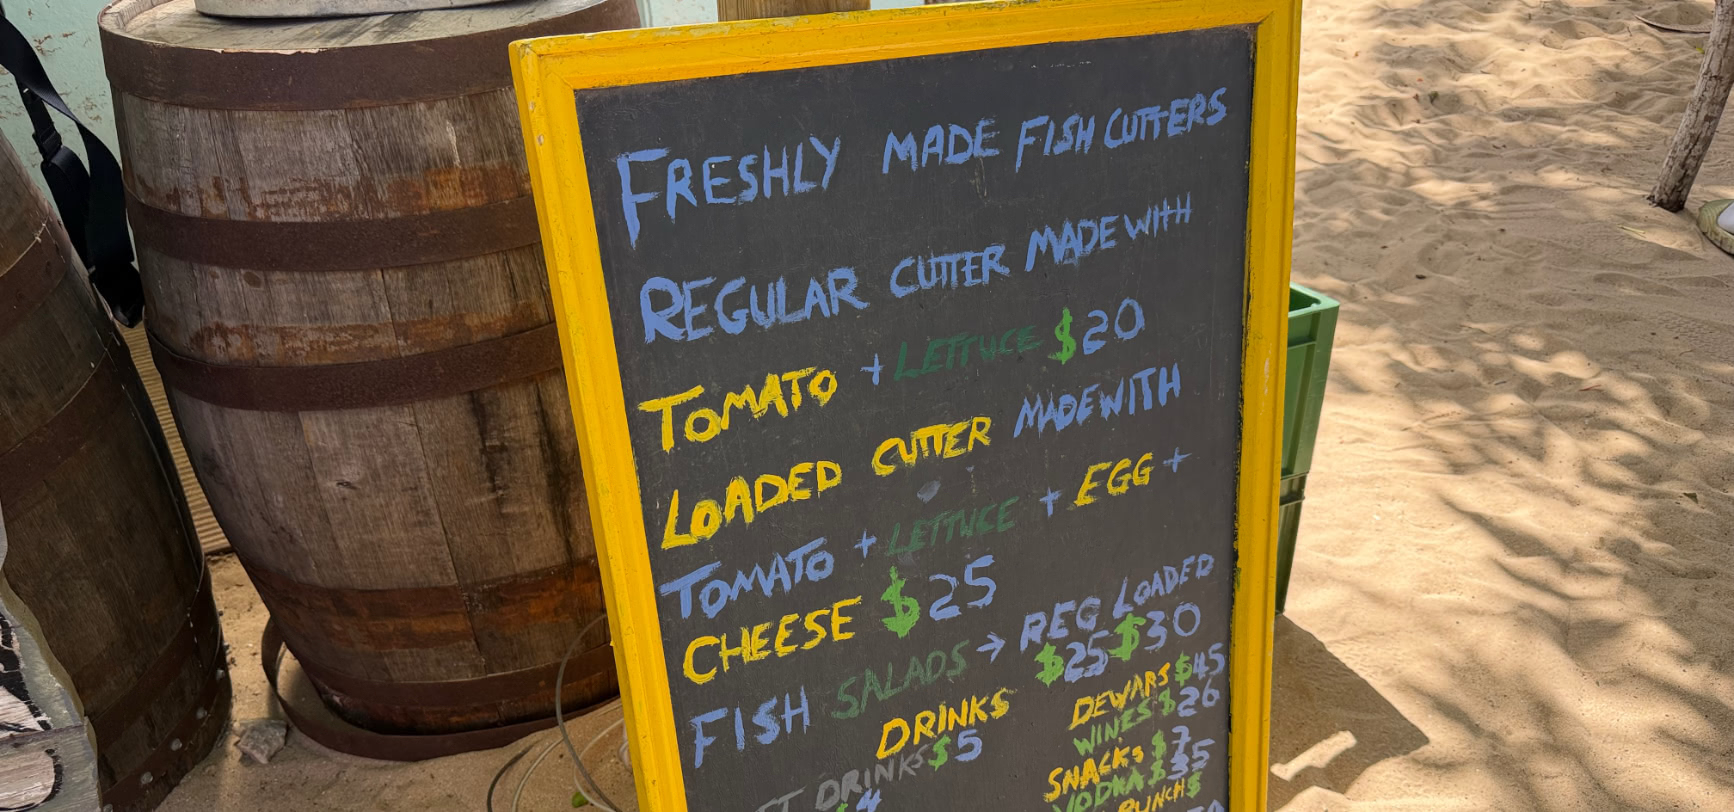 FRESHLY MADE FISH CUTTERS
REGULAR CUTTER MADE WITH
TOMATO + LETTUCE $20
LOADED CUTTER MADE WITH
TOMATO + LETTUCE + EGG +
CHEESE $25
FISH SALADS → REG LOADED
$25 $30
DRINKS
DRINKS $5
$4
DEWARS $45
WINES $26
SNACKS $7
VODKA $35
PUNCH $